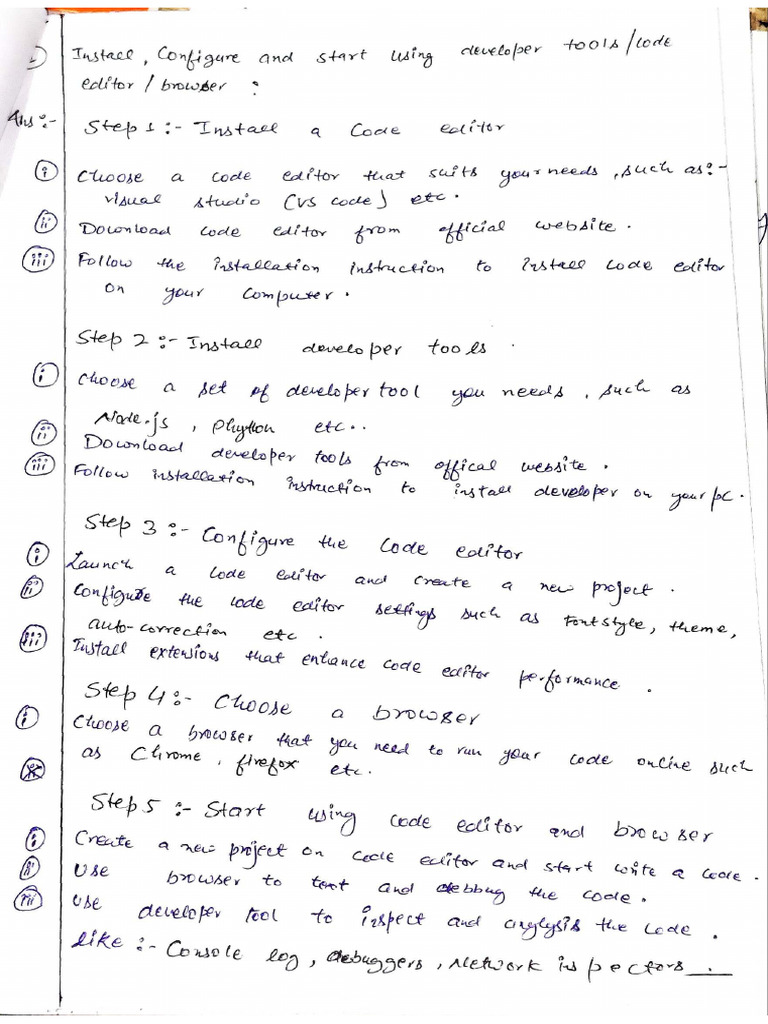 Install, Configure and start using developer tools/code
editor/browser :
Ans:- Step 1:- Install a Code editor
(i) Choose a code editor that suits your needs, such as:-
visual studio (vs code) etc.
(ii) Download code editor from official website.
(iii) Follow the installation instruction to install code editor
on your computer.
Step 2:- Install developer tools.
(i) Choose a set of developer tool you needs, such as
Node.js, Phython etc..
(ii) Download developer tools from offical website.
(iii) Follow installation instruction to install developer on your pc.
Step 3:- Configure the code editor
(i) Launch a code editor and create a new project.
(ii) Configure the code editor settings such as Fontstyle, theme,
auto-correction etc.
(iii) Install extensions that enhance code editor performance.
Step 4:- Choose a browser
(i) Choose a browser that you need to run your code online such
as Chrome, firefox etc.
Step 5:- Start using code editor and browser
(i) Create a new project on code editor and start write a code.
(ii) Use browser to test and debbug the code.
(iii) Use developer tool to inspect and anglysis the code.
like:- Console log, debuggers, Network inspectors.